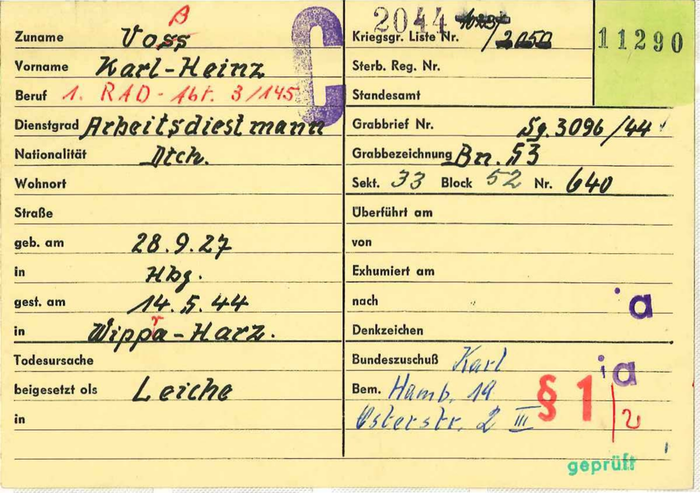 Zuname Voss ß
Vorname Karl-Heinz
Beruf 1. RAD-Abt. 3/145
Dienstgrad Arbeitsdiestmann
Nationalität Dtch.
Wohnort
Straße
geb. am 28.9.27
in Hbg.
gest. am 14.5.44
in Wippra-Harz.
Todesursache
beigesetzt als Leiche
in
C
2044
Kriegsgr. Liste Nr. /2050
Sterb. Reg. Nr.
Standesamt
11290
Grabbrief Nr. Sg. 3096/44
Grabbezeichnung Bn. 53
Sekt. 33 Block 52 Nr. 640
Überführt am
von
Exhumiert am
nach
a
Denkzeichen
Bundeszuschuß Karl
a
Bem. Hamb. 19
§ 1/2
Osterstr. 2 III
geprüft